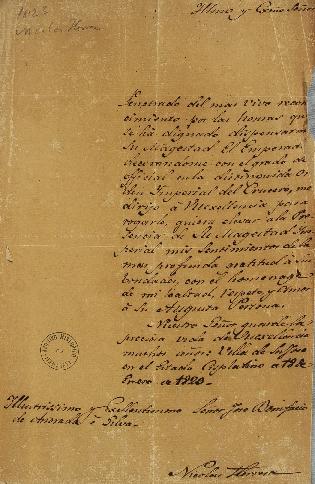 1823
Nicolas Herrera
Illmo. y Exmo. Señor
Penetrado del mas vivo recono-
cimiento por las honras que
se há dignado dispensarme
Su Magestad El Emperador
decorandome con el grado de
official en la distinguida Or
den Imperial del Crucero, me
dirijo à Vuexellencia para
rogarle, quiera elevar a la Pre
sencia de Su Magestad Im-
perial mis sentimientos de la
mas profunda gratitud à sus
bondades, con el homenage
de mi lealtad, respeto, y amor
à Su Augusta Persona.
Nuestro Señor guarde la
preciosa vida de Vuexellencia
muchos años: Villa de
en el Estado Cisplatino a 18 de
Enero de 1823.
Illustrissimo y Excellentissimo Señor Jose Bonifacio
de Andrada è Silva.
Nicolas Herrera